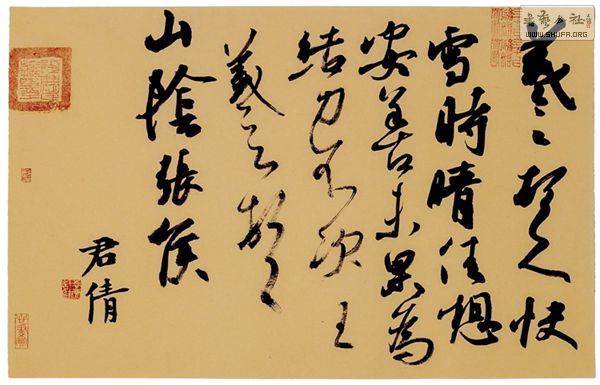 羲之頓首快
雪時晴佳想
安善未果為
結力不次王
羲之頓首
山陰張侯
君倩
WWW.SHUFA.ORG